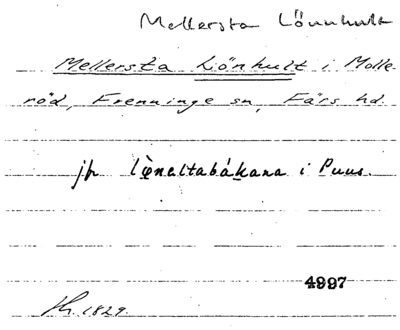 Mellersta Lönnhult
Mellersta Lönhult i Molle-
röd, Frenninge sn, Färs hd.
jfr lö̀neltabákana i Puus.
4997
1829.